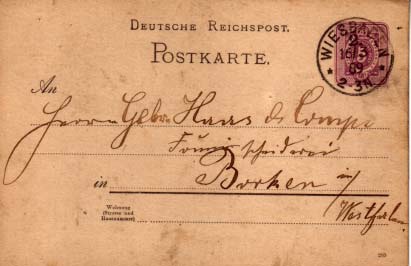 DEUTSCHE REICHSPOST.
POSTKARTE.
WIESBADEN
2-3N
An
Herren Gebr. Haas & Comp
in Borken in
Westfalen
Wohnung
(Strasse und
Hausnummer)